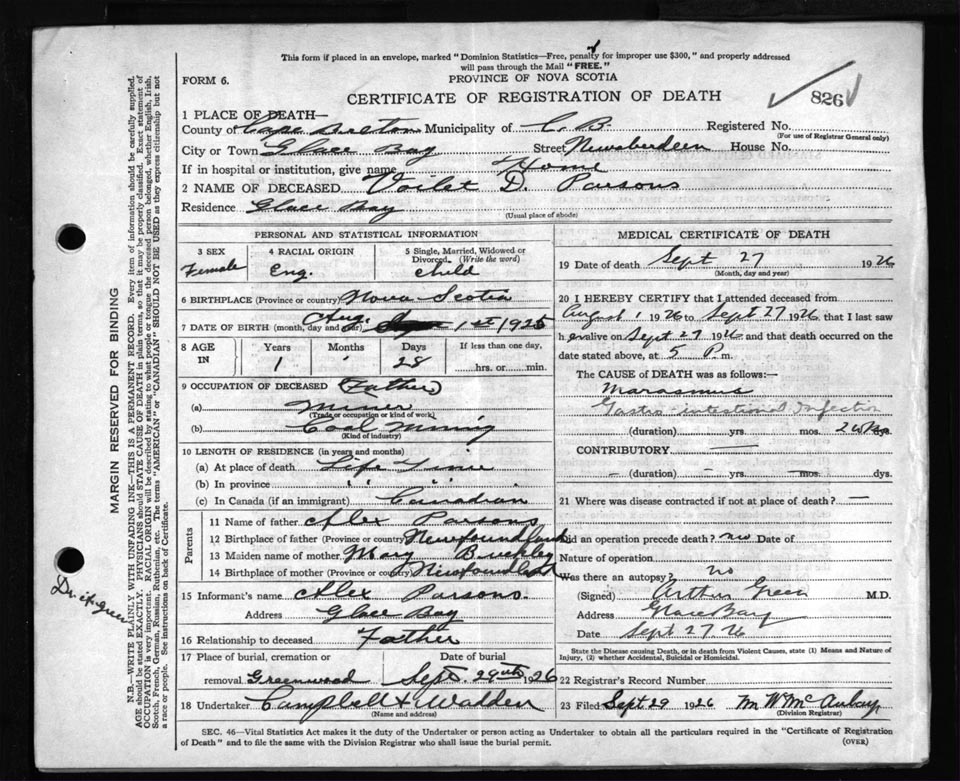 This form if placed in an envelope, marked "Dominion Statistics—Free, penalty for improper use $300," and properly addressed
will pass through the Mail "FREE."
FORM 6.
PROVINCE OF NOVA SCOTIA
CERTIFICATE OF REGISTRATION OF DEATH
826
1 PLACE OF DEATH—
County of Cape Breton Municipality of C. B Registered No.
(For use of Registrar General only)
City or Town Glace Bay Street Newaberdeen House No.
If in hospital or institution, give name Home
2 NAME OF DECEASED Voilet D. Parsons
Residence Glace Bay
(Usual place of abode)
PERSONAL AND STATISTICAL INFORMATION
3 SEX 4 RACIAL ORIGIN 5 Single, Married, Widowed or
Divorced (Write the word)
Female Eng. child
6 BIRTHPLACE (Province or country) Nova Scotia
7 DATE OF BIRTH (month, day and year) Aug. 1st 1925
8 AGE IN Years Months Days If less than one day,
1 1 28 hrs. or min.
9 OCCUPATION OF DECEASED (Father)
(a) Miner
(Trade or occupation or kind of work)
(b) Coal Mining
(Kind of industry)
10 LENGTH OF RESIDENCE (in years and months)
(a) At place of death Life Time
(b) In province " " "
(c) In Canada (if an immigrant) Canadian
Parents
11 Name of father Alex Parsons
12 Birthplace of father (Province or country) Newfoundland
13 Maiden name of mother Mary Buckley
14 Birthplace of mother (Province or country) Newfoundland
15 Informant's name Alex Parsons.
Address Glace Bay
16 Relationship to deceased Father
17 Place of burial, cremation or Date of burial
removal Greenwood Sept. 29th 1926
18 Undertaker Campbell & Wadden
(Name and address)
MEDICAL CERTIFICATE OF DEATH
19 Date of death Sept 27 1926
(Month, day and year)
20 I HEREBY CERTIFY that I attended deceased from
August 1 1926 to Sept 27 1926 that I last saw
her alive on Sept 27 1926 and that death occurred on the
date stated above, at 5 P. m.
The CAUSE OF DEATH was as follows:—
Marasmus
Gastro-intestional Infection
(duration) yrs. mos. dys.
CONTRIBUTORY —
— (duration) — yrs. — mos. dys.
21 Where was disease contracted if not at place of death? —
Did an operation precede death? no Date of
Nature of operation
Was there an autopsy? no
(Signed) Arthur Green M.D.
Address Glace Bay
Date Sept 27 26
State the Disease causing Death, or in death from Violent Causes, state (1) Means and Nature of
Injury, (2) whether Accidental, Suicidal or Homicidal.
22 Registrar's Record Number
23 Filed Sept 29 1926
(Division Registrar)
SEC. 46—Vital Statistics Act makes it the duty of the Undertaker or person acting as Undertaker to obtain all the particulars required in the "Certificate of Registration
of Death" and to file the same with the Division Registrar who shall issue the burial permit.
(OVER)
MARGIN RESERVED FOR BINDING
N.B.—WRITE PLAINLY WITH UNFADING INK—THIS IS A PERMANENT RECORD. Every item of information should be carefully supplied.
AGE should be stated EXACTLY. PHYSICIANS should STATE CAUSE OF DEATH in plain terms, so that it may be properly classified. Exact statement of
OCCUPATION is very important. RACIAL ORIGIN will be described by stating to what people or tongue the deceased person belonged, whether English, Irish,
Scotch, French, German, Russian, Ruthenian, etc. The terms "AMERICAN" or "CANADIAN" SHOULD NOT BE USED as they express citizenship but not
a race or people. See instructions on back of Certificate.